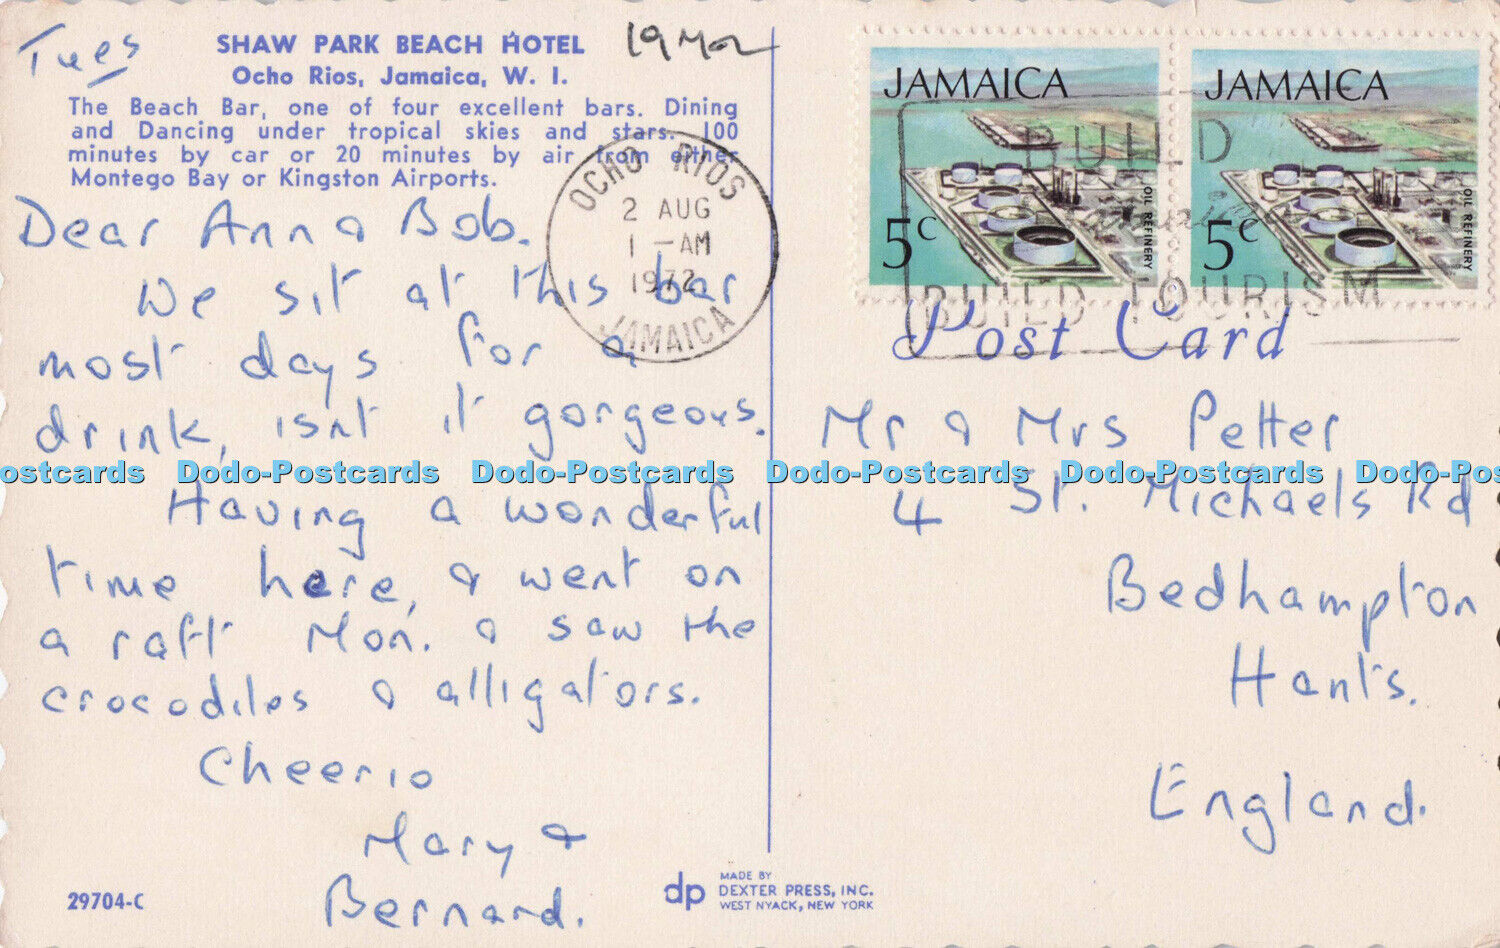 Tues
SHAW PARK BEACH HOTEL
Ocho Rios, Jamaica, W. I.
The Beach Bar, one of four excellent bars. Dining
and Dancing under tropical skies and stars. 100
minutes by car or 20 minutes by air from either
Montego Bay or Kingston Airports.
Dear Ann & Bob.
We sit at this bar
most days for a
drink, isnt it gorgeous.
Having a wonderful
time here, & went on
a raft Mon. & saw the
crocodiles & alligators.
Cheerio
Mary &
Bernard.
29704-C
OCHO RIOS
2 AUG
1 -AM
1972
JAMAICA
JAMAICA
5c
OIL REFINERY
JAMAICA
5c
OIL REFINERY
BUILD
BUILD TOURISM
Post Card
Mr & Mrs Petter
4 St. Michaels Rd
Bedhampton
Hants.
England.
dp
MADE BY
DEXTER PRESS, INC.
WEST NYACK, NEW YORK
ostcards Dodo-Postcards Dodo-Postcards Dodo-Postcards Dodo-Postcards Dodo-Post